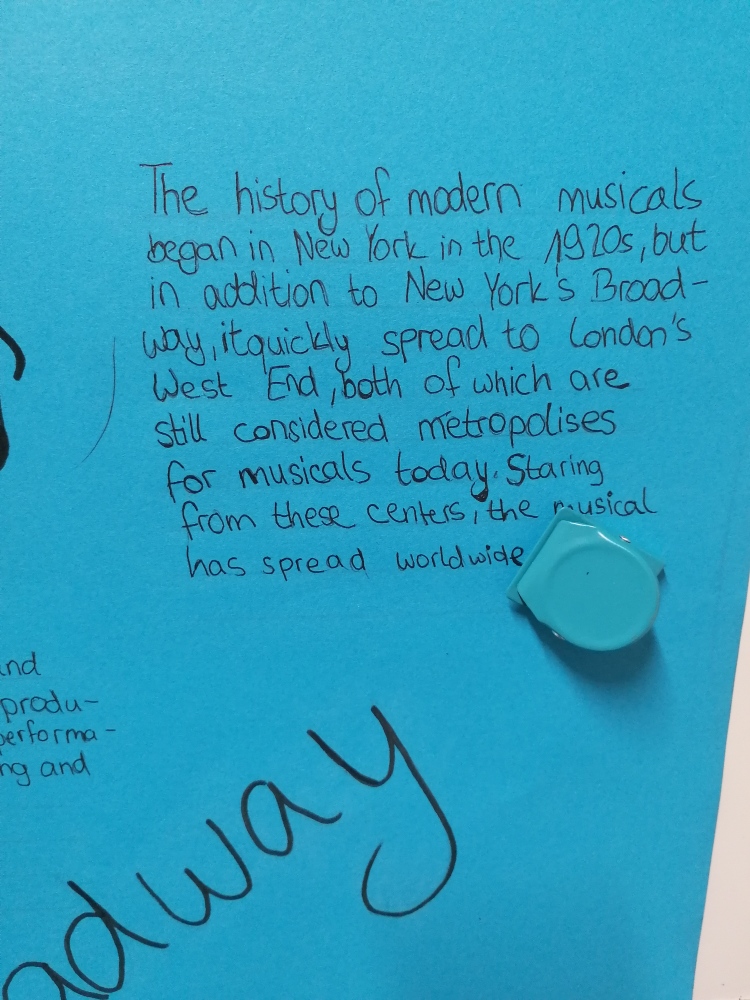 The history of modern musicals
began in New York in the 1920s, but
in addition to New York's Broad-
way, it quickly spread to London's
West End, both of which are
still considered metropolises
for musicals today. Staring
from these centers, the musical
has spread worldwide
and
produ-
performa-
ng and
adway